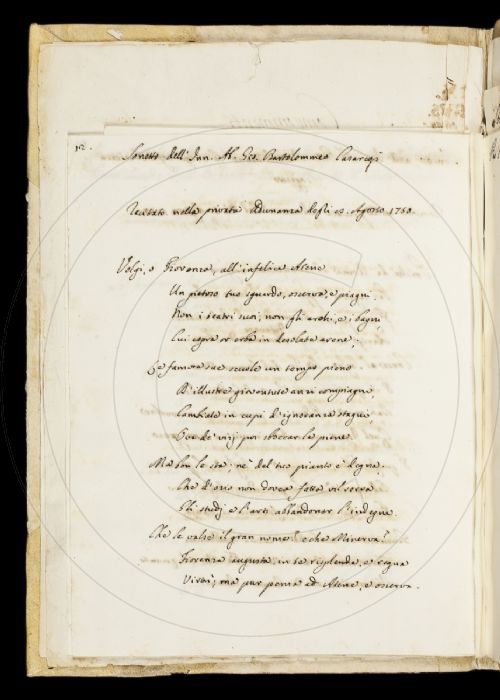 Sonetto dell' Inn. Ab. Gio. Bartolommeo Casaregi
Recitato nella privata Adunanza degli Agosto 1750.
Volgi, o Fiorenza, all' infelice Atene
Un pietoso tuo sguardo, osserva, e piagni
Non i teatri suoi, non gli archi, e i bagni,
Cui copra or erba in desolate arene;
Le famose sue scuole un tempo piene
D' illustre gioventute anzi compiagni,
Cambiate in cupi d' ignoranza stagni,
Ove de' vizj pur sboccar le piene.
Ma ben le sta; nè del tuo pianto è degna,
Che d' ozio non dovea fatta vil serva
Gli studj e l' arti abbandonar l' indegna.
Che le valse il gran nome? e che Minerva?
Fiorenza augusta, in te risplenda, e regna
Virtù; ma pur pensa ad Atene, e osserva.